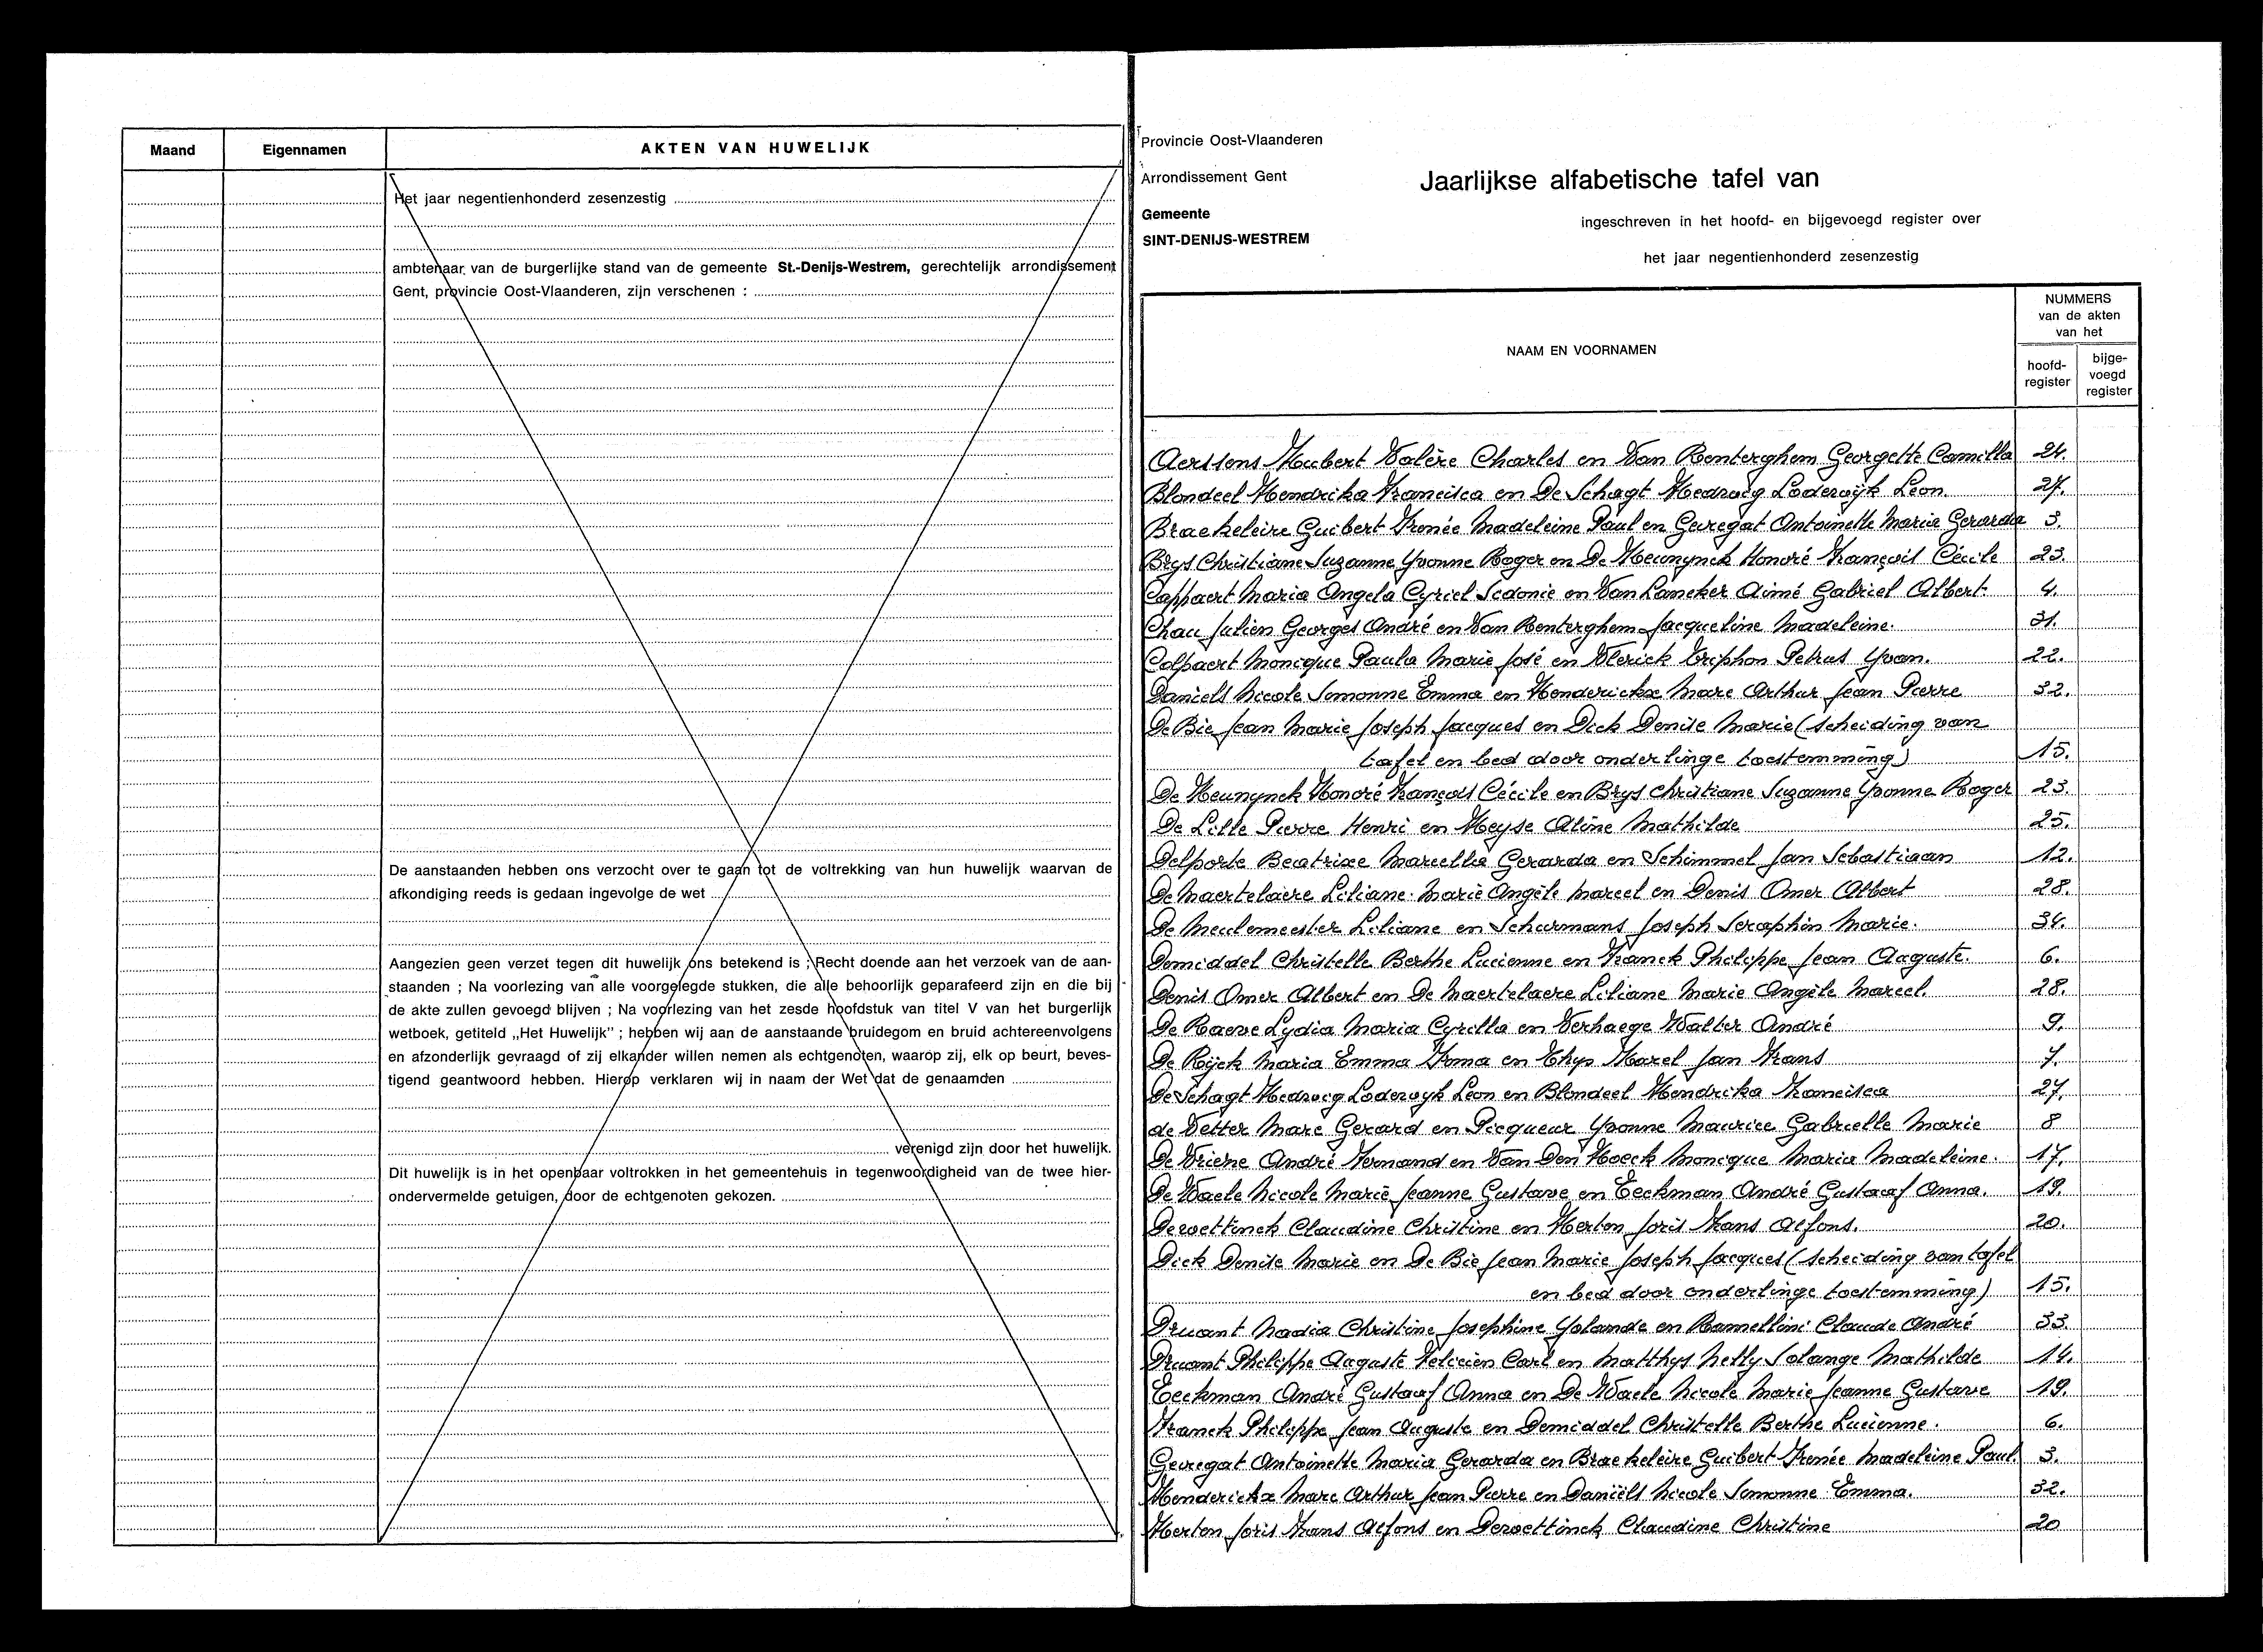 Maand
Eigennamen
AKTEN VAN HUWELIJK
Het jaar negentienhonderd zesenzestig
ambtenaar van de burgerlijke stand van de gemeente St.-Denijs-Westrem, gerechtelijk arrondissement
Gent, provincie Oost-Vlaanderen, zijn verschenen :
De aanstaanden hebben ons verzocht over te gaan tot de voltrekking van hun huwelijk waarvan de
afkondiging reeds is gedaan ingevolge de wet
Aangezien geen verzet tegen dit huwelijk ons betekend is ; Recht doende aan het verzoek van de aan-
staanden ; Na voorlezing van alle voorgelegde stukken, die alle behoorlijk geparafeerd zijn en die bij
de akte zullen gevoegd blijven ; Na voorlezing van het zesde hoofdstuk van titel V van het burgerlijk
wetboek, getiteld „Het Huwelijk" ; hebben wij aan de aanstaande bruidegom en bruid achtereenvolgens
en afzonderlijk gevraagd of zij elkander willen nemen als echtgenoten, waarop zij, elk op beurt, beves-
tigend geantwoord hebben. Hierop verklaren wij in naam der Wet dat de genaamden
verenigd zijn door het huwelijk.
Dit huwelijk is in het openbaar voltrokken in het gemeentehuis in tegenwoordigheid van de twee hier-
ondervermelde getuigen, door de echtgenoten gekozen.
Provincie Oost-Vlaanderen
Arrondissement Gent
Gemeente
SINT-DENIJS-WESTREM
Jaarlijkse alfabetische tafel van
ingeschreven in het hoofd- en bijgevoegd register over
het jaar negentienhonderd zesenzestig
NAAM EN VOORNAMEN
NUMMERS
van de akten
van het
hoofd-
register
bijge-
voegd
register
Aerssens Hubert Valère Charles en Van Renterghem Georgette Camilla 24.
Blondeel Hendrika Francisca en De Schagt Hedwig Lodewijk Leon. 27.
Braekeleire Guibert Irenée Madeleine Paul en Gevregat Antoinette Maria Gerarda 3.
Brys Christiane Suzanne Yvonne Roger en De Keunynck Honoré François Cécile 23.
Cappaert Maria Angela Cyriel Sidonie en Van Lancker Aimé Gabriel Albert. 4.
Chau Julien Georges André en Van Renterghem Jacqueline Madeleine. 31.
Colpaert Monique Paula Marie José en Vlerick Triphon Petrus Yvan. 22.
Daniels Nicole Simonne Emma en Henderickx Marc Arthur Jean Pierre 32.
De Bie Jean Marie Joseph Jacques en Dick Denise Marie (scheiding van
tafel en bed door onderlinge toestemming) 15.
De Keunynck Honoré François Cécile en Brys Christiane Suzanne Yvonne Roger 23.
De Lille Pierre Henri en Heyse Aline Mathilde 25.
Delporte Beatrixe Marcella Gerarda en Schimmel Jan Sebastiaan 12.
De Maertelaere Liliane Marie Angèle Marcel en Denis Omer Albert 28.
De Meulemeester Liliane en Schurmans Joseph Seraphin Marie. 34.
Demiddel Christelle Berthe Lucienne en Franck Philippe Jean Auguste. 6.
Denis Omer Albert en De Maertelaere Liliane Marie Angèle Marcel. 28.
De Raeve Lydia Maria Cyrilla en Verhaege Walter André 9.
De Rijck Maria Emma Irma en Thys Karel Jan Frans 7.
De Schagt Hedwig Lodewijk Leon en Blondeel Hendrika Francisca 27.
de Vetter Marc Gerard en Picqueur Yvonne Maurice Gabrielle Marie 8
De Vriene André Fernand en Van Den Hoeck Monique Maria Madeleine. 17.
De Waele Nicole Marie Jeanne Gustave en Eeckman André Gustaaf Anna. 19.
Dewettinck Claudine Christine en Herten Joris Frans Alfons. 20.
Dick Denise Marie en De Bie Jean Marie Joseph Jacques (scheiding van tafel
en bed door onderlinge toestemming) 15.
Druant Nadia Christine Josephine Yolande en Ramellini Claude André 33.
Druant Philippe Auguste Felicien Carl en Matthys Nelly Solange Mathilde 14.
Eeckman André Gustaaf Anna en De Waele Nicole Marie Jeanne Gustave 19.
Franck Philippe Jean Auguste en Demiddel Christelle Berthe Lucienne. 6.
Gevregat Antoinette Maria Gerarda en Braekeleire Guibert Irenée Madeleine Paul. 3.
Henderickx Marc Arthur Jean Pierre en Daniëls Nicole Simonne Emma. 32.
Herten Joris Frans Alfons en Dewettinck Claudine Christine 20